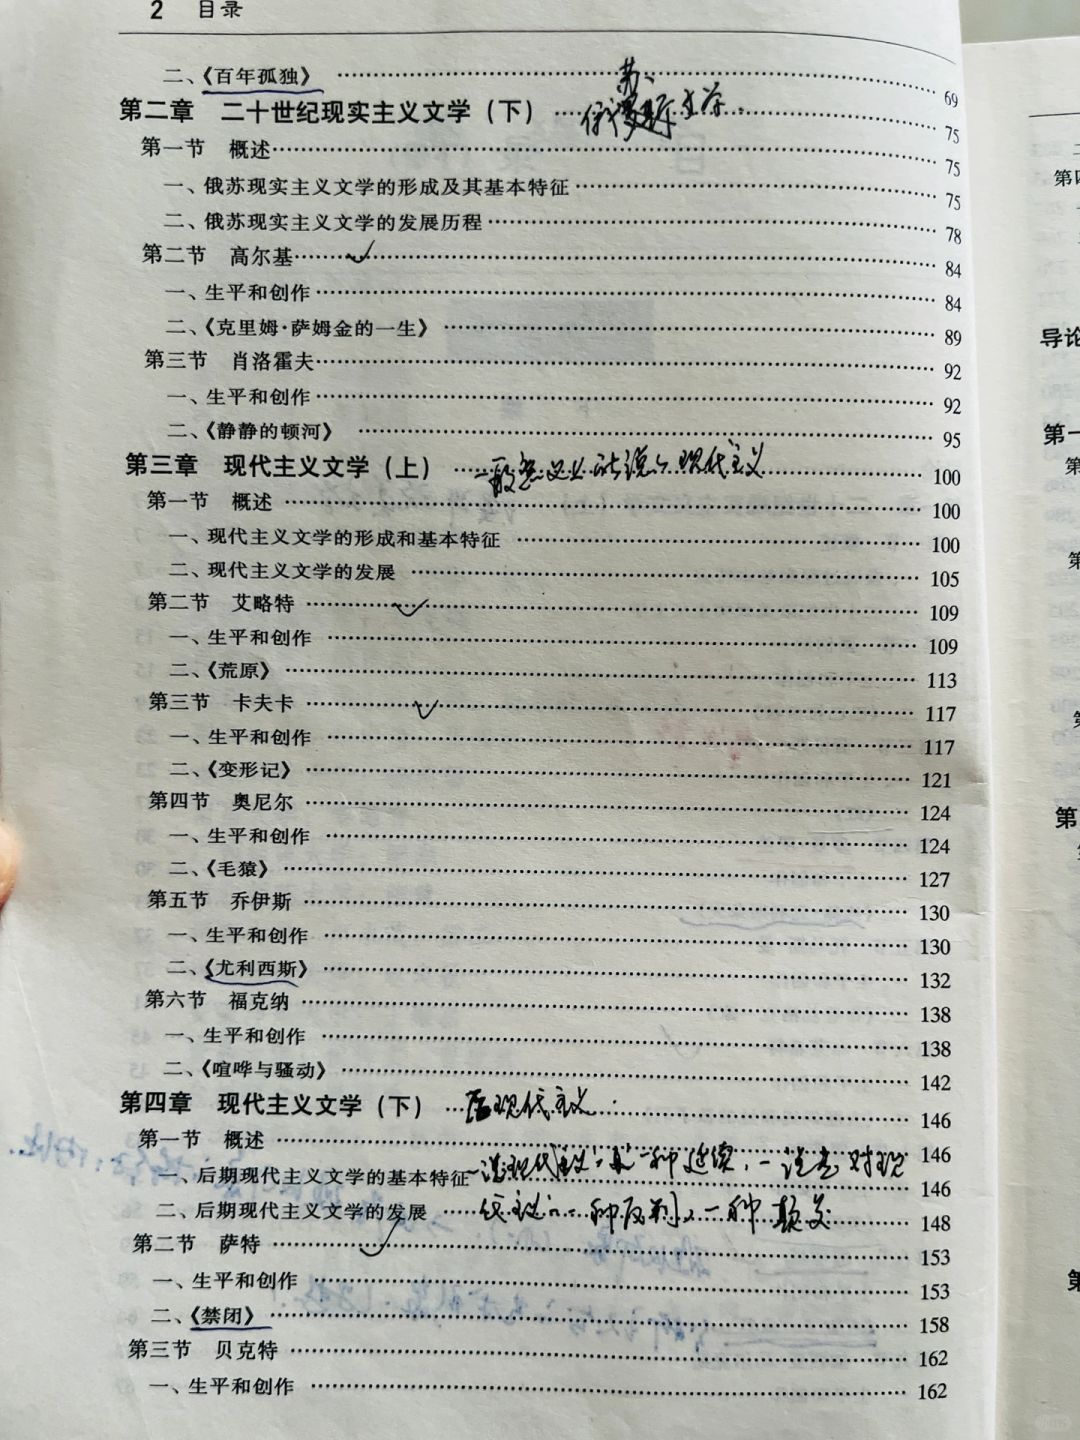 2 目录
二、《百年孤独》 69
第二章 二十世纪现实主义文学（下） 75
第一节 概述 75
一、俄苏现实主义文学的形成及其基本特征 75
二、俄苏现实主义文学的发展历程 78
第二节 高尔基 84
一、生平和创作 84
二、《克里姆·萨姆金的一生》 89
第三节 肖洛霍夫 92
一、生平和创作 92
二、《静静的顿河》 95
第三章 现代主义文学（上） 一般意义上所说的现代主义 100
第一节 概述 100
一、现代主义文学的形成和基本特征 100
二、现代主义文学的发展 105
第二节 艾略特 109
一、生平和创作 109
二、《荒原》 113
第三节 卡夫卡 117
一、生平和创作 117
二、《变形记》 121
第四节 奥尼尔 124
一、生平和创作 124
二、《毛猿》 127
第五节 乔伊斯 130
一、生平和创作 130
二、《尤利西斯》 132
第六节 福克纳 138
一、生平和创作 138
二、《喧哗与骚动》 142
第四章 现代主义文学（下） 后现代主义 146
第一节 概述 146
一、后期现代主义文学的基本特征 一说现代主义的一种延续，一说是对现 146
二、后期现代主义文学的发展 代主义的一种反判，一种颠 148
第二节 萨特 153
一、生平和创作 153
二、《禁闭》 158
第三节 贝克特 162
一、生平和创作 162
导论
第一